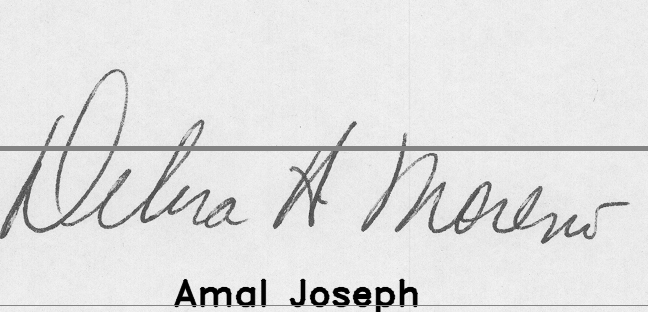 Debra H Moreno
Amal Joseph